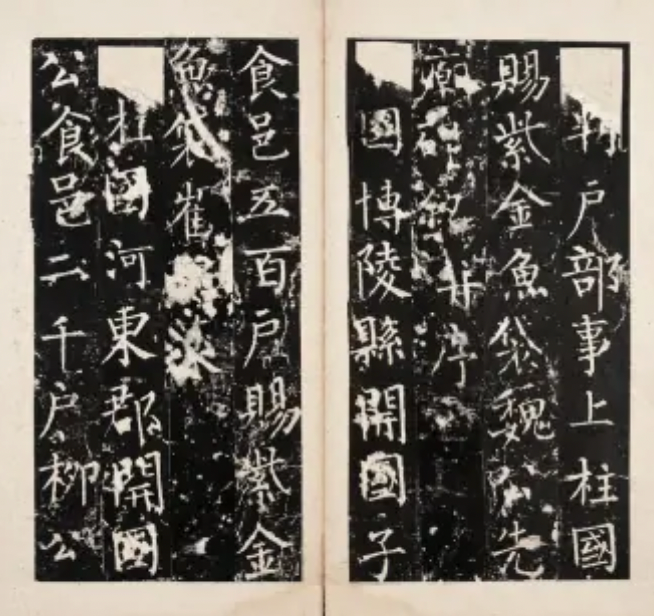 判户部事上柱國
賜紫金魚袋魏公先
廟碑銘并序
國博陵縣開國子
食邑五百户賜紫金
魚袋崔
柱國河東郡開國
公食邑二千户柳公